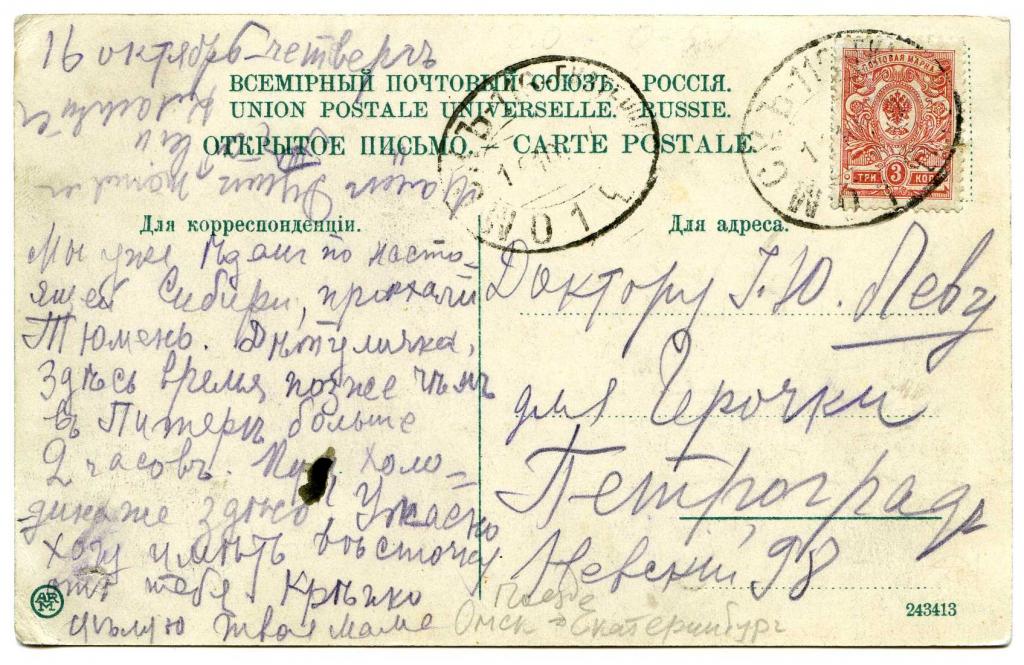 16 октябрь-четвергъ
ВСЕМІРНЫЙ ПОЧТОВЫЙ СОЮЗЪ. РОССІЯ.
UNION POSTALE UNIVERSELLE. RUSSIE.
ОТКРЫТОЕ ПИСЬМО. — CARTE POSTALE.
Для корреспонденціи.
Мы уже ѣдемъ по насто-
ящей Сибири, проѣхали
Тюмень.
Здѣсь время позже чѣмъ
въ Питерѣ больше
2 часовъ. Холо-
дина же здѣсь! Ужасно
хочу имѣть вѣсточку
отъ тебя. Крѣпко
цѣлую твоя мама
Для адреса.
Доктору Г.Ю. Леву
для Герочки
Петроградъ
Невскій, 98
Поезд
Омск - Екатеринбург
ТРИ 3 КОП
ARM
243413